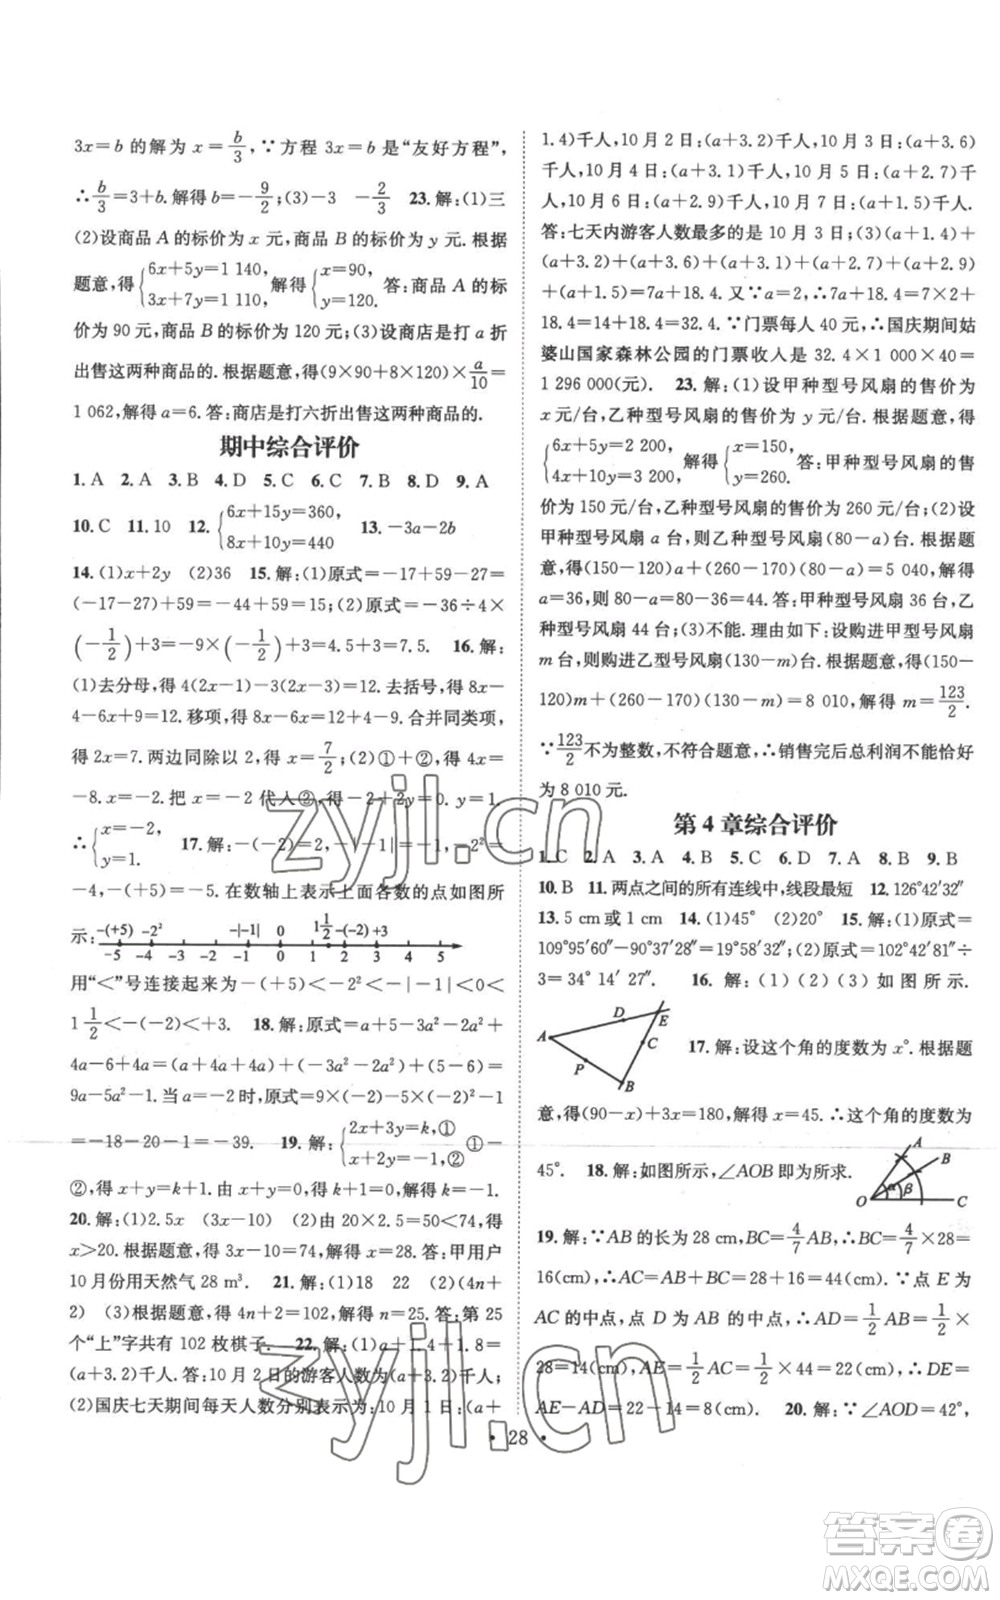 3x=b 的解为 x=b/3,∵方程 3x=b 是“友好方程”,
∴b/3=3+b.解得 b=-9/2;(3)-3 -2/3 23.解:(1)三
(2)设商品 A 的标价为 x 元,商品 B 的标价为 y 元.根据
题意,得{6x+5y=1 140, 3x+7y=1 110.解得{x=90, y=120.答:商品 A 的标
价为 90 元,商品 B 的标价为 120 元;(3)设商店是打 a 折
出售这两种商品的.根据题意,得(9×90+8×120)×a/10=
1 062,解得 a=6.答:商店是打六折出售这两种商品的.
期中综合评价
1.A 2.A 3.B 4.D 5.C 6.C 7.B 8.D 9.A
10.C 11.10 12.{6x+15y=360, 8x+10y=440 13.-3a-2b
14.(1)x+2y (2)36 15.解:(1)原式=-17+59-27=
(-17-27)+59=-44+59=15;(2)原式=-36÷4×
(-1/2)+3=-9×(-1/2)+3=4.5+3=7.5. 16.解:
(1)去分母,得 4(2x-1)-3(2x-3)=12.去括号,得 8x-
4-6x+9=12.移项,得 8x-6x=12+4-9.合并同类项,
得 2x=7.两边同除以 2,得 x=7/2;(2)①+②,得 4x=
-8.x=-2.把 x=-2 代人②,得-2+2y=0.y=1.
∴{x=-2, y=1. 17.解:-(-2)=2,-|-1|=-1,-2²=
-4,-(+5)=-5.在数轴上表示上面各数的点如图所
示: -(+5) -2² -|-1| 0 1½ -(-2) +3
-5 -4 -3 -2 -1 0 1 2 3 4 5
用“<”号连接起来为-(+5)<-2²<-|-1|<0<
1½<-(-2)<+3. 18.解:原式=a+5-3a²-2a²+
4a+4a-6=(a+4a+4a)+(-3a²-2a²)+(5-6)=
9a-5a²-1.当 a=-2 时,原式=9×(-2)-5×(-2)²-1
=-18-20-1=-39. 19.解:{2x+3y=k,① x+2y=-1,② ①-
②,得 x+y=k+1.由题意,得 x+y=0,即 k+1=0.得 k=-1.
20.解:(1)2.5x (3x-10) (2)由 20×2.5=50<74,得
x>20.根据题意,得 3x-10=74,解得 x=28.答:甲用户
10 月份用天然气 28 m³. 21.解:(1)18 22 (2)(4n+
2) (3)根据题意,得 4n+2=102,解得 n=25.答:第 25
个“上”字共有 102 枚棋子. 22.解:(1)a+1.4+1.8=
(a+3.2)千人.答:10 月 2 日的游客人数为(a+3.2)千人;
(2)国庆七天期间每天人数分别表示为:10 月 1 日:(a+
1.4)千人,10 月 2 日:(a+3.2)千人,10 月 3 日:(a+3.6)
千人,10 月 4 日:(a+3.1)千人,10 月 5 日:(a+2.7)千
人,10 月 6 日:(a+2.9)千人,10 月 7 日:(a+1.5)千人.
答:七天内游客人数最多的是 10 月 3 日;(3)(a+1.4)+
(a+3.2)+(a+3.6)+(a+3.1)+(a+2.7)+(a+2.9)
+(a+1.5)=7a+18.4.又∵a=2,∴7a+18.4=7×2+
18.4=14+18.4=32.4.∵门票每人 40 元,∴国庆期间姑
婆山国家森林公园的门票收入是 32.4×1 000×40=
1 296 000(元). 23.解:(1)设甲种型号风扇的售价为
x 元/台,乙种型号风扇的售价为 y 元/台.根据题意,得
{6x+5y=2 200, 4x+10y=3 200.解得{x=150, y=260.答:甲种型号风扇的售
价为 150 元/台,乙种型号风扇的售价为 260 元/台;(2)设
甲种型号风扇 a 台,则乙种型号风扇(80-a)台.根据题
意,得(150-120)a+(260-170)(80-a)=5 040,解得
a=36,则 80-a=80-36=44.答:甲种型号风扇 36 台,乙
种型号风扇 44 台;(3)不能.理由如下:设购进甲型号风扇
m 台,则购进乙型号风扇(130-m)台.根据题意,得(150-
120)m+(260-170)(130-m)=8 010,解得 m=123/2.
∵123/2不为整数,不符合题意,∴销售完后总利润不能恰好
为 8 010 元.
第 4 章综合评价
1.C 2.A 3.A 4.B 5.C 6.D 7.A 8.B 9.B
10.B 11.两点之间的所有连线中,线段最短 12.126°42′32″
13.5 cm或1 cm 14.(1)45° (2)20° 15.解:(1)原式=
109°95′60″-90°37′28″=19°58′32″;(2)原式=102°42′51″÷
3=34°14′17″. 16.解:(1)(2)(3)如图所示.
A D E C P B 17.解:设这个角的度数为 x°.根据题
意,得(90-x)+3x=180,解得 x=45.∴这个角的度数为
45°. 18.解:如图所示,∠AOB 即为所求. A B O α β C
19.解:∵AB 的长为 28 cm,BC=4/7 AB,∴BC=4/7×28=
16(cm).∴AC=AB+BC=28+16=44(cm).∵点 E 为
AC 的中点,点 D 为 AB 的中点,∴AD=1/2 AB=1/2×
28=14(cm),AE=1/2 AC=1/2×44=22(cm),∴DE=
AE-AD=22-14=8(cm). 20.解:∵∠AOD=42°,
28
zyjl.cn
zyjl.cn
答案圈
MXQE.COM